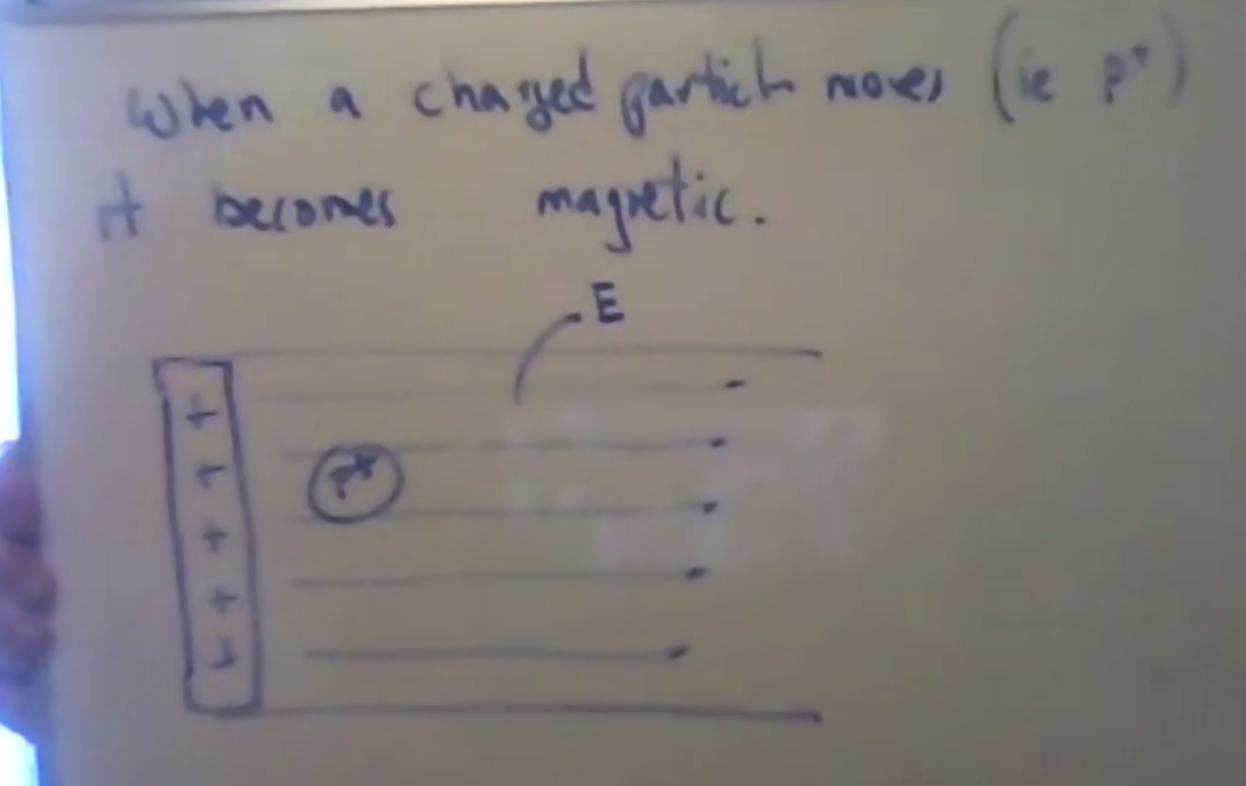 When a charged particle moves (ie P⁺)
it becomes magnetic.
E
+
+
P⁺
+
+
+